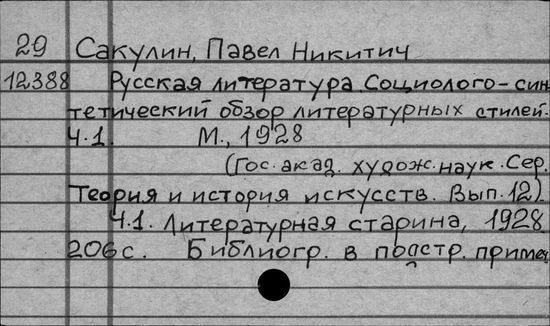 29 Сакулин, Павел Никитич
12388 Русская литература. Социолого-син
тетический обзор литературных стилей.
Ч.1. М., 1928
(Гос. акад. худож. наук. Сер.
Теория и история искусств. Вып. 12).
Ч.1. Литературная старина, 1928
206 с. Библиогр. в подстр. примеч